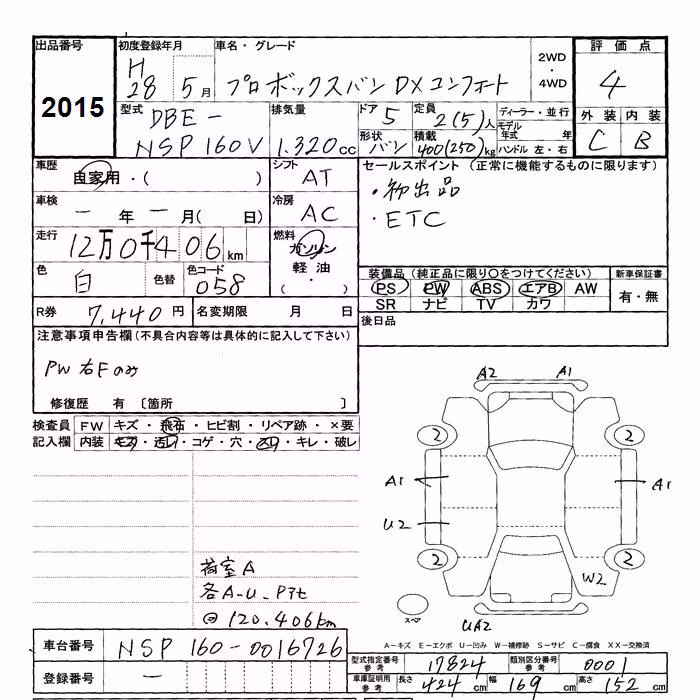 出品番号 初度登録年月 車名・グレード 2WD ・ 4WD 評価点
2015 H28 5月 プロボックスバン DXコンフォート 4
型式 DBE-NSP160V 排気量 1.320cc ドア 5 定員 2(5)人 ディーラー・並行 外装 内装
形状 バン 積載 400(250)kg モデル年式 年 ハンドル 左・右 C B
車歴 自家用・( ) シフト AT セールスポイント (正常に機能するものに限ります)
・初出品
車検 一年一月( 日) 冷房 AC ・ETC
走行 12万0千406km 燃料 ガソリン
軽油
・( )
色 白 色替 色コード 058 装備品(純正品に限り〇をつけてください) 新車保証書
PS PW ABS エアB AW 有・無
SR ナビ TV カワ
R券 7,440円 名変期限 月 日 後日品
注意事項申告欄(不具合内容等は具体的に記入して下さい)
PW右Fのみ
修復歴 有 〔箇所 〕
検査員 FW キズ・飛石・ヒビ割・リペア跡・×要
記入欄 内装 キズ・汚レ・コゲ・穴・スレ・キレ・破レ
A2 A1
2 2
A1 A1
U2
2 2
W2
スペア UA2
荷室A
各A-U-Pキセ
@120.406km
A−キズ E−エクボ U−凹み W−補修跡 S−サビ C−腐食 XX−交換済
車台番号 NSP160-0016726
登録番号 ―
型式指定番号 参考 17824 類別区分番号 参考 0001
車庫証明用 参考 長さ 424cm 幅 169cm 高さ 152cm